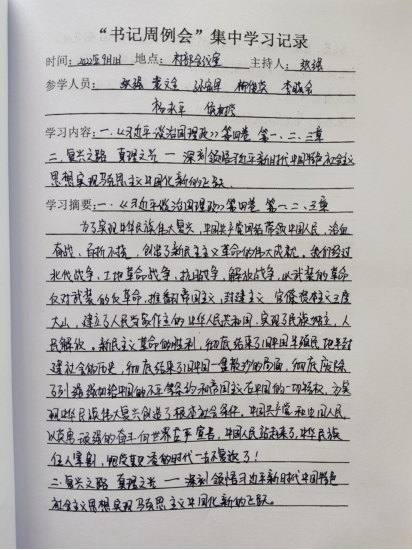 “书记周例会”集中学习记录
时间：2022年9月1日 地点：村部会议室 主持人：张强
参学人员：张强
学习内容：一、《习近平谈治国理政》第四卷 第一、二、三章
二、复兴之路 真理之光 — 深刻领悟习近平新时代中国特色社会主义
思想实现马克思主义中国化新的飞跃.
学习摘要：一、《习近平谈治国理政》第四卷 第一、二、三章
为了实现中华民族伟大复兴，中国共产党团结带领中国人民，浴血
奋战、百折不挠，创造了新民主主义革命的伟大成就。我们经过
北伐战争、土地革命战争、抗日战争、解放战争，以武装的革命
反对武装的反革命，推翻帝国主义，封建主义，官僚资本主义三座
大山，建立了人民当家作主的中华人民共和国，实现了民族独立，人
民解放。新民主主义革命的胜利，彻底结束了旧中国半殖民地半封
建社会的历史，彻底结束了旧中国一盘散沙的局面，彻底废除
了列强强加给中国的不平等条约和帝国主义在中国的一切特权，为实
现中华民族伟大复兴创造了根本社会条件，中国共产党和中国人民
以英勇顽强的奋斗向世界庄严宣告，中国人民站起来了，中华民族
任人宰割，饱受欺凌的时代一去不复返了！
二、复兴之路 真理之光 — 深刻领悟习近平新时代中国特色
社会主义思想实现马克思主义中国化新的飞跃.